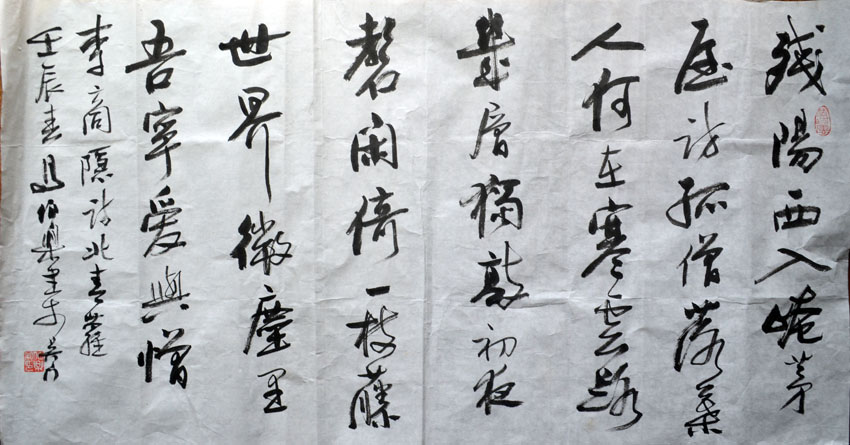 残陽西入崦茅
屋訪孤僧落葉
人何在寒雲路
幾層獨敲初夜
磬閑倚一枝藤
世界微塵里
吾寧愛與憎
李商隱詩北青蘿
壬辰春